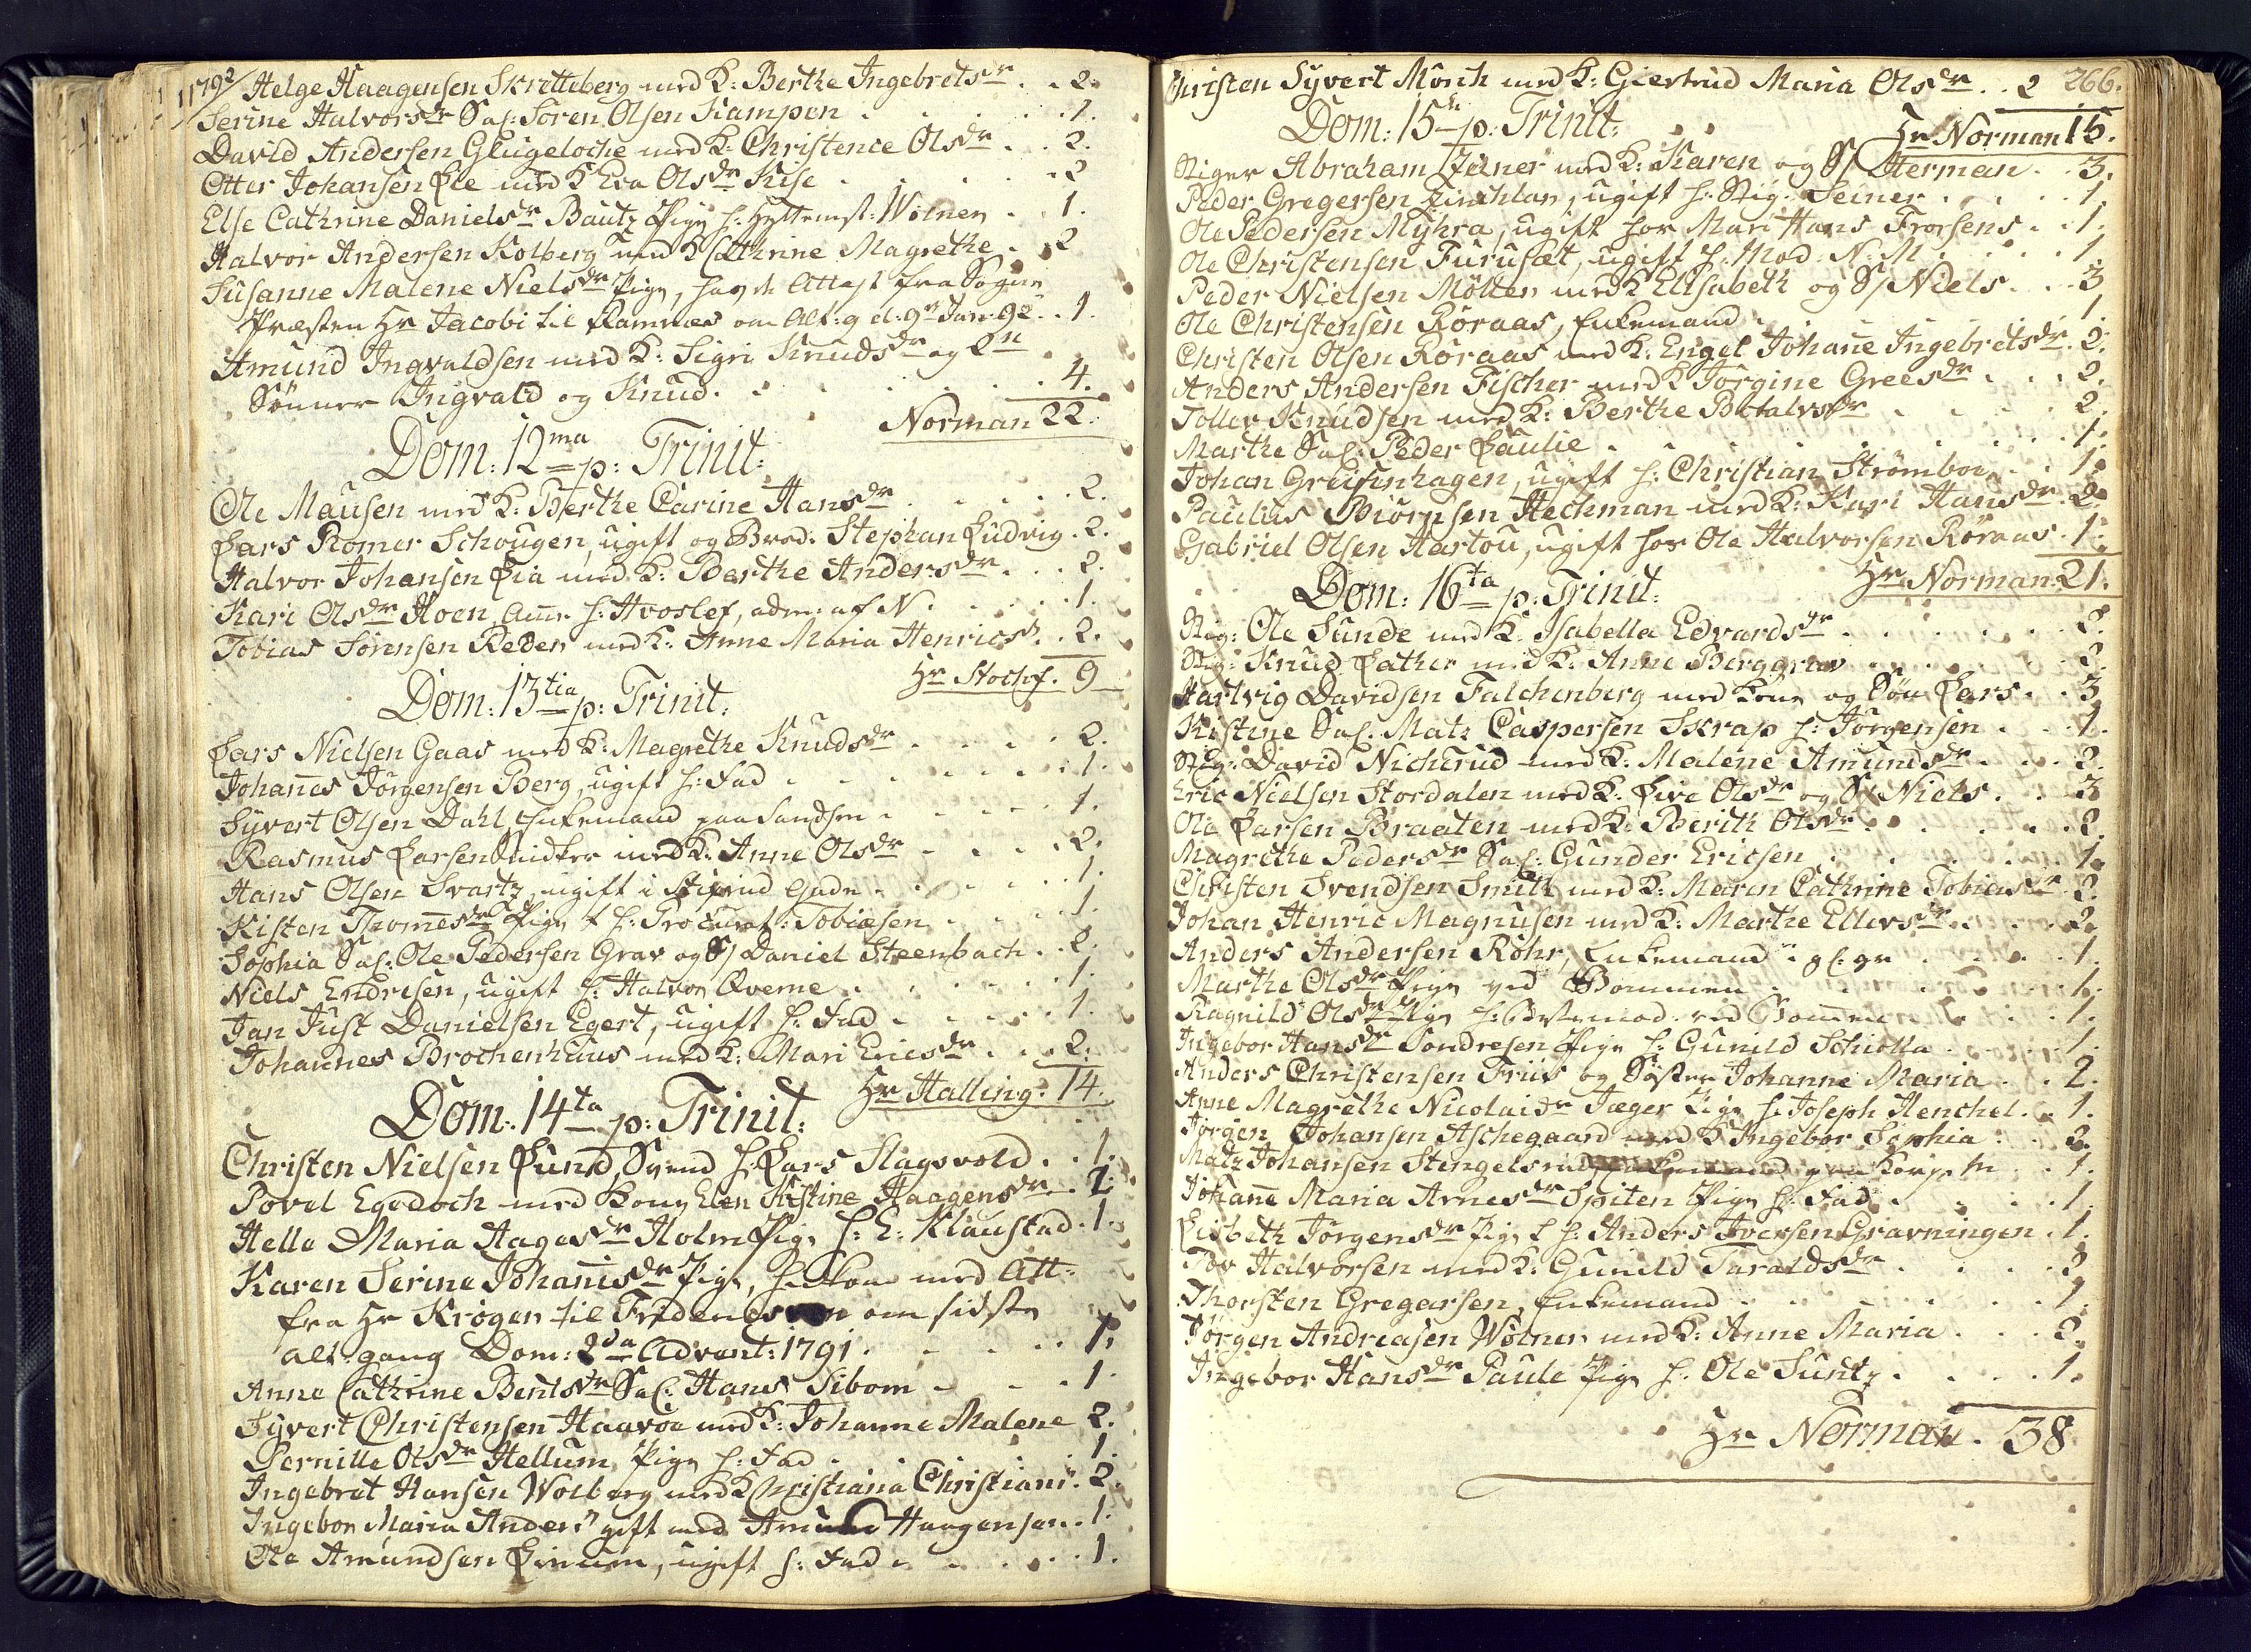 1792
Helge Haagensen Skretteberg med K: Berthe Ingebretsdr . . 2.
Serine Halvorsdr Sal: Sören Olsen Kampen . . . . 1.
David Andersen Glugeloche med K: Christence Olsdr . . 2.
Otter Johansen Lie med K Eva Olsdr Kise . . . . 2
Else Cathrine Danielsdr Bautz Pige h: Hyttemst: Wölner . 1.
Halvor Andersen Kolberg med K Cathrine Magrethe . 2
Susanne Malene Nielsdr Pige, havde Attest fra Sogne
Præsten Hr Jacobi til om Alt: g d: 9de Jan: 92 . . 1.
Amund Ingvaldsen med K: Sigri Knudsdr og 2n
Sönner Ingvald og Knud. . . . . . 4.
Norman 22.
Dom: 12ma p: Trinit:
Ole Mausen med K: Berthe Carine Hansdr . . . . 2.
Lars Romer Schougen, ugift og Brod: Stephan Ludvig . 2.
Halvor Johansen Lia med K: Berthe Andersdr . . . 2.
Kari Olsdr Hoen, Ame h: Hvoslef, adm: af N . . . . 1.
Tobias Sörensen Reder med K: Anne Maria Henrics . . 2.
Hr Stochf. 9
Dom: 13tia p: Trinit:
Lars Nielsen Gaas med K: Magrethe Knudsdr . . . . 2.
Johannes Jörgensen Berg, ugift h: Fad . . . . . 1.
Syvert Olsen Dahl Enkemand paa Sandsen . . . . 1.
Rasmus Larsen med K: Anne Olsdr . . . . 2.
Hans Olsen Svartz, ugift i Gade . . . . 1.
Kisten Thomesdr Pige h: Procurat: Tobiæsen . . . 1.
Sophia Sal: Ole Pedersen Grav og S/ Daniel Steenbach . . 2.
Niels Endresen, ugift h: Halvor Qverne . . . . 1.
Jan Just Danielsen Egert, ugift h: Fad . . . . 1.
Johannes Brochenhuus med K: Mari Ericsdr . . . 2.
Hr Halling: 14.
Dom: 14ta p: Trinit:
Christen Nielsen Lund, Svend h: Lars Slagsvold . . 1.
Povel Egedoch med Kone Elen Kistine Haagensdr . 2.
Helle Maria Aagesdr Holm Pige h: E: Klaustad . 1.
Karen Serine Johanisdr Pige, med Att:
fra Hr Kröger til Fridericsværn om sidste
alt: gang Dom: 2da Advent: 1791 . . . . . 1.
Anne Cathrine Bentsdr Sal: Hans Sibom . . . 1.
Syvert Christensen Haavoe med K: Johanne Malene 2.
Pernille Olsdr Hellum, Pige h: Fad . . . . 1.
Ingebret Hansen Wolberg med K Christiana Christians: 2.
Ingebor Maria Anders: gift med Amund Haagensen . 1.
Ole Amundsen Linnem, ugift h: Fad . . . . 1.
266.
Christen Syvert Mönch med K: Giertrud Maria Olsdr . . 2
Hr Norman 15.
Dom: 15ta p: Trinit:
Stiger Abraham Feiner med K: Karen og S/ Herman . 3.
Peder Gregersen, ugift h: Stig: Seiner . . . . 1.
Ole Pedersen Myhra, ugift hos Mari Hans Trorsens . . 1.
Ole Christensen Furusæt, ugift h: Mod: N: M . . . . 1.
Peder Nielsen Möller med K Elisabeth og S/ Niels . . 3
Ole Christensen Röraas, Enkemand . . . . 1.
Christen Olsen Röraas med K: Engel Johane Ingebretsdr . 2.
Anders Andersen Fischer med K Jörgine Greesdr . . . 2.
Tollev Knudsen med K: Berthe . . . . 2.
Marthe Sal: Peder Paulie . . . . . . 1.
Johan Greifenhagen, ugift h: Christian Strömboe . . 1.
Paulus Biörnsen Hechman med K: Kari Hansdr . 2.
Gabriel Olsen Hartou, ugift hos Ole Halvorsen Röraas . 1.
Hr Norman 21.
Dom: 16ta p: Trinit:
Stig: Ole Sunde med K: Isabella Edvardsdr . . . . . 2.
Stig: Knud Lather med K: Anne Berggrav . . . . 2.
Hartvig Davidsen Falchenberg med Kone og Sön Lars . . 3
Kistine Sal: Matz Caspersen Skrap h: Jörgensen . . . 1.
Stig: David Nicherud med K: Malene Amundsdr . . . 2.
Eric Nielsen Stordalen med K: Live Olsdr og S/ Niels . . 3
Ole Larsen Braaten med K: Berith Olsdr . . . . . 2.
Magrethe Pedersdr Sal: Gunder Ericsen . . . . . 1.
Christen Svendsen Smith med K: Maren Cathrine Tobiæsdr . 2.
Johan Henric Magnusen med K: Marthe Ellevsdr . . . . 2.
Anders Andersen Rohr, Enkemand . . . . 1.
Marthe Olsdr Pige ved Bommen . . . . . . 1.
Ragnild Olsdr Pige h: Bestemod: ved Bommen . . . . 1.
Ingebor Hansdr Sondresen Pige h: Gunild Schiolla . . . . 1.
Anders Christensen Friis og Söster Johanne Maria . . . 2.
Anne Magrethe Nicolaidr Jæger Pige h: Joseph Henchel . . 1.
Jörgen Johansen Aschegaard med K Ingebor Sophia . . 2.
Matz Johansen Stengelsrud Enkemand paa . . 1.
Johane Maria Arnesdr Spiten Pige h: Fad . . . . 1.
Lisbeth Jörgensdr Pige h: Anders Iversen Gravningen . 1.
Tov Halvorsen med K: Gunild Taraldsdr . . . . . 2
Thorsten Gregarsen, Enkemand . . . . . . . 1.
Jörgen Andreasen Wölner med K: Anne Maria . . . 2.
Ingebor Hansdr Paule Pige h: Ole Suntz . . . . 1.
Hr Norman . 38